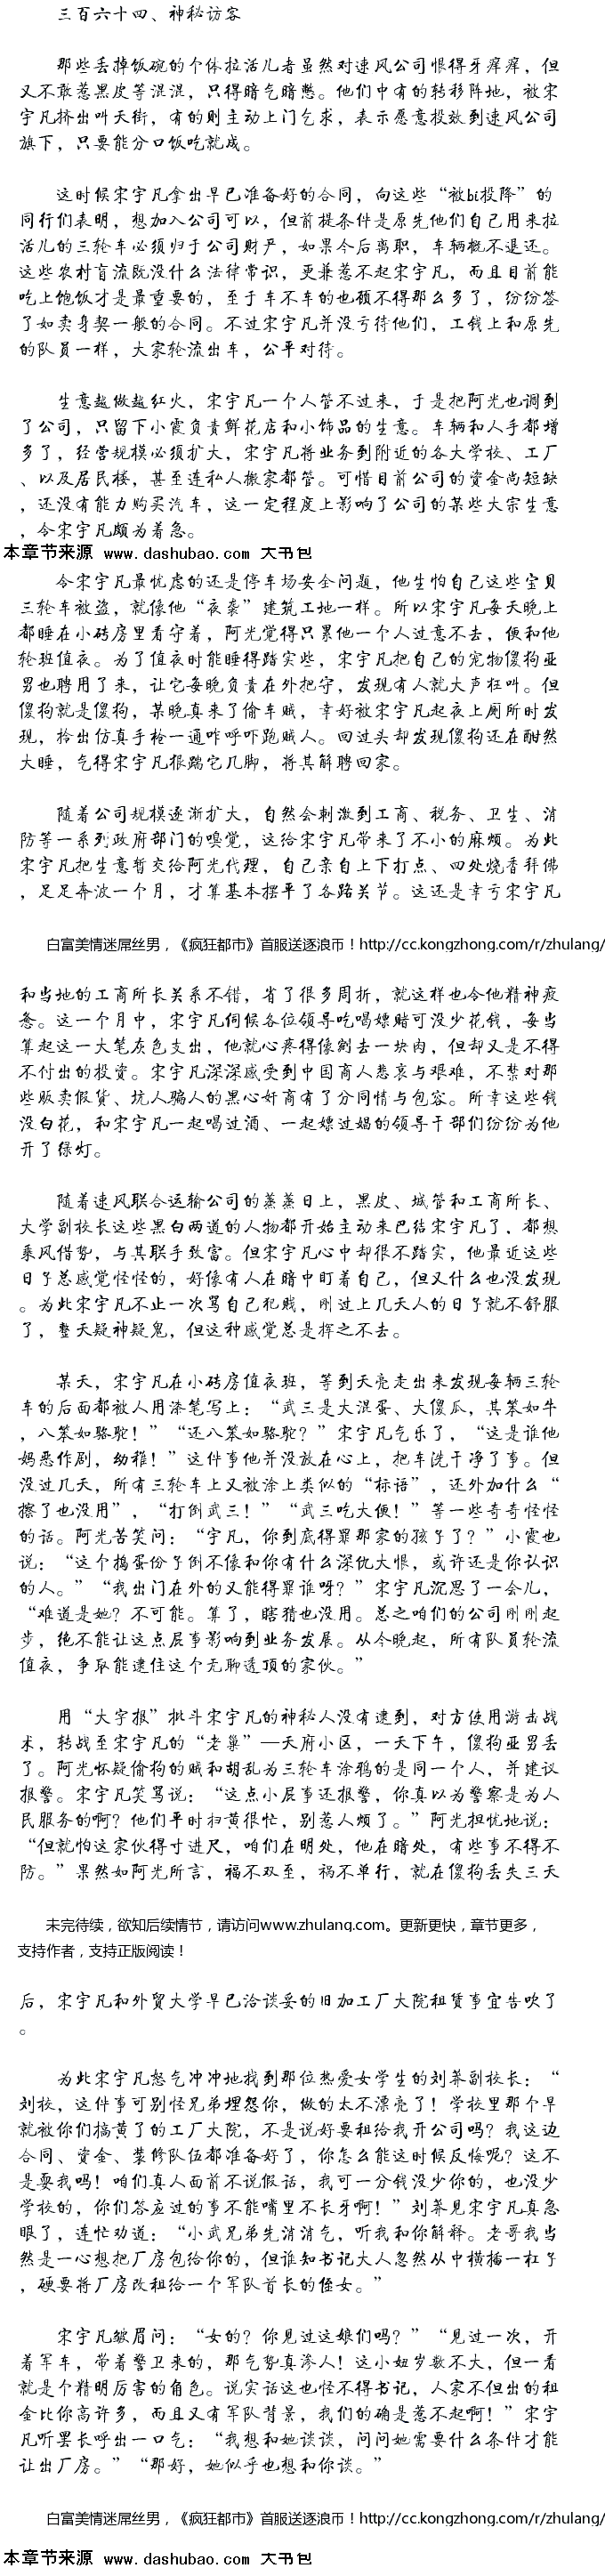 三百六十四、神秘访客
那些丢掉饭碗的个体拉活儿者虽然对速风公司恨得牙痒痒，但
又不敢惹黑皮等混混，只得暗气暗憋。他们中有的转移阵地，被宋
宇凡挤出叫天街，有的则主动上门乞求，表示愿意投效到速风公司
旗下，只要能分口饭吃就成。
这时候宋宇凡拿出早已准备好的合同，向这些“被bi投降”的
同行们表明，想加入公司可以，但前提条件是原先他们自己用来拉
活儿的三轮车必须归于公司财产，如果今后离职，车辆概不退还。
这些农村盲流既没什么法律常识，更兼惹不起宋宇凡，而且目前能
吃上饱饭才是最重要的，至于车不车的也顾不得那么多了，纷纷签
了如卖身契一般的合同。不过宋宇凡并没亏待他们，工钱上和原先
的队员一样，大家轮流出车，公平对待。
生意越做越红火，宋宇凡一个人管不过来，于是把阿光也调到
了公司，只留下小霞负责鲜花店和小饰品的生意。车辆和人手都增
多了，经营规模必须扩大，宋宇凡将业务到附近的各大学校、工厂
、以及居民楼，甚至连私人搬家都管。可惜目前公司的资金尚短缺
，还没有能力购买汽车，这一定程度上影响了公司的某些大宗生意
，令宋宇凡颇为着急。
本章节来源 www.dashubao.com 大书包
令宋宇凡最忧虑的还是停车场安全问题，他生怕自己这些宝贝
三轮车被盗，就像他“夜袭”建筑工地一样。所以宋宇凡每天晚上
都睡在小砖房里看守着，阿光觉得只累他一个人过意不去，便和他
轮班值夜。为了值夜时能睡得踏实些，宋宇凡把自己的宠物傻狗亚
男也聘用了来，让它每晚负责在外把守，发现有人就大声狂叫。但
傻狗就是傻狗，某晚真来了偷车贼，幸好被宋宇凡起夜上厕所时发
现，拎出仿真手枪一通咋呼吓跑贼人。回过头却发现傻狗还在酣然
大睡，气得宋宇凡狠踹它几脚，将其解聘回家。
随着公司规模逐渐扩大，自然会刺激到工商、税务、卫生、消
防等一系列政府部门的嗅觉，这给宋宇凡带来了不小的麻烦。为此
宋宇凡把生意暂交给阿光代理，自己亲自上下打点、四处烧香拜佛
，足足奔波一个月，才算基本摆平了各路关节。这还是幸亏宋宇凡
白富美情迷屌丝男，《疯狂都市》首服送逐浪币！http://cc.kongzhong.com/r/zhulang/
和当地的工商所长关系不错，省了很多周折，就这样也令他精神疲
惫。这一个月中，宋宇凡伺候各位领导吃喝嫖赌可没少花钱，每当
算起这一大笔灰色支出，他就心疼得像剜去一块肉，但却又是不得
不付出的投资。宋宇凡深深感受到中国商人悲哀与艰难，不禁对那
些贩卖假货、坑人骗人的黑心奸商有了分同情与包容。所幸这些钱
没白花，和宋宇凡一起喝过酒、一起嫖过娼的领导干部们纷纷为他
开了绿灯。
随着速风联合运输公司的蒸蒸日上，黑皮、城管和工商所长、
大学副校长这些黑白两道的人物都开始主动来巴结宋宇凡了，都想
乘风借势，与其联手致富。但宋宇凡心中却很不踏实，他最近这些
日子总感觉怪怪的，好像有人在暗中盯着自己，但又什么也没发现
。为此宋宇凡不止一次骂自己犯贱，刚过上几天人的日子就不舒服
了，整天疑神疑鬼，但这种感觉总是挥之不去。
某天，宋宇凡在小砖房值夜班，等到天亮走出来发现每辆三轮
车的后面都被人用漆笔写上：“武三是大混蛋、大傻瓜，其笨如牛
，八笨如骆驼！”“还八笨如骆驼？”宋宇凡气乐了，“这是谁他
妈恶作剧，幼稚！”这件事他并没放在心上，把车洗干净了事。但
没过几天，所有三轮车上又被涂上类似的“标语”，还外加什么“
擦了也没用”，“打倒武三！”“武三吃大便！”等一些奇奇怪怪
的话。阿光苦笑问：“宇凡，你到底得罪那家的孩子了？”小霞也
说：“这个捣蛋份子倒不像和你有什么深仇大恨，或许还是你认识
的人。”“我出门在外的又能得罪谁呀？”宋宇凡沉思了一会儿，
“难道是她？不可能。算了，瞎猜也没用。总之咱们的公司刚刚起
步，绝不能让这点屁事影响到业务发展。从今晚起，所有队员轮流
值夜，争取能逮住这个无聊透顶的家伙。”
用“大字报”批斗宋宇凡的神秘人没有逮到，对方使用游击战
术，转战至宋宇凡的“老巢”—天府小区，一天下午，傻狗亚男丢
了。阿光怀疑偷狗的贼和胡乱为三轮车涂鸦的是同一个人，并建议
报警。宋宇凡笑骂说：“这点小屁事还报警，你真以为警察是为人
民服务的啊？他们平时扫黄很忙，别惹人烦了。”阿光担忧地说：
“但就怕这家伙得寸进尺，咱们在明处，他在暗处，有些事不得不
防。”果然如阿光所言，福不双至，祸不单行，就在傻狗丢失三天
未完待续，欲知后续情节，请访问www.zhulang.com。更新更快，章节更多，
支持作者，支持正版阅读！
后，宋宇凡和外贸大学早已洽谈妥的旧加工厂大院租赁事宜告吹了
。
为此宋宇凡怒气冲冲地找到那位热爱女学生的刘莽副校长：“
刘校，这件事可别怪兄弟埋怨你，做的太不漂亮了！学校里那个早
就被你们搞黄了的工厂大院，不是说好要租给我开公司吗？我这边
合同、资金、装修队伍都准备好了，你怎么能这时候反悔呢？这不
是耍我吗！咱们真人面前不说假话，我可一分钱没少你的，也没少
学校的，你们答应过的事不能嘴里不长牙啊！”刘莽见宋宇凡真急
眼了，连忙劝道：“小武兄弟先消消气，听我和你解释。老哥我当
然是一心想把厂房包给你的，但谁知书记大人忽然从中横插一杠子
，硬要将厂房改租给一个军队首长的侄女。”
宋宇凡皱眉问：“女的？你见过这娘们吗？”“见过一次，开
着军车，带着警卫来的，那气势真渗人！这小妞岁数不大，但一看
就是个精明厉害的角色。说实话这也怪不得书记，人家不但出的租
金比你高许多，而且又有军队背景，我们的确是惹不起啊！”宋宇
凡听罢长呼出一口气：“我想和她谈谈，问问她需要什么条件才能
让出厂房。”“那好，她似乎也想和你谈。”
白富美情迷屌丝男，《疯狂都市》首服送逐浪币！http://cc.kongzhong.com/r/zhulang/
本章节来源 www.dashubao.com 大书包